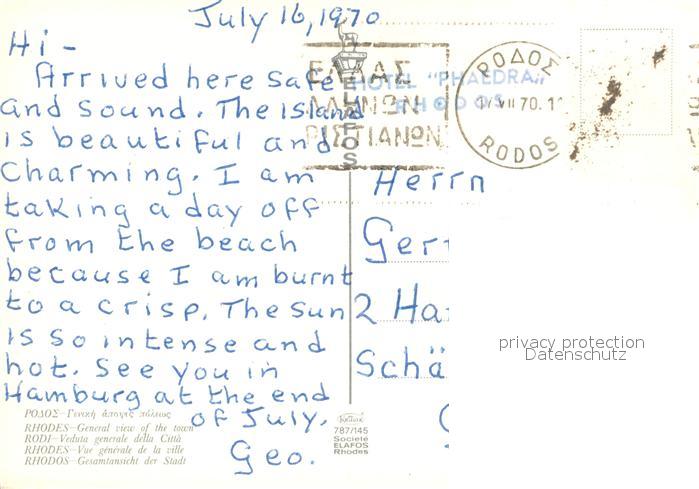 July 16, 1970
Hi -
Arrived here safe
and sound. The Island
is beautiful and
Charming. I am
taking a day off
from the beach
because I am burnt
to a crisp. The sun
is so intense and
hot. See you in
Hamburg at the end
of July.
Geo.
HOTEL "PHAEDRA"
RHODOS
ΕΛΛΑΣ
ΡΟΔΟΣ
VII 70
RODOS
ELAFOS
Herrn
Ger
2 Ha
Schä
privacy protection
Datenschutz
ΡΟΔΟΣ—Γενική ἄποψις πόλεως
RHODES—General view of the town
RODI—Veduta generale della Città
RHODES—Vue générale de la ville
RHODOS—Gesamtansicht der Stadt
787/145
Société
ELAFOS
Rhodes